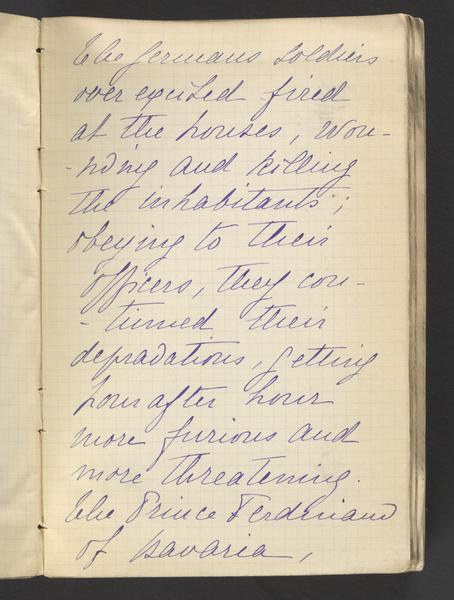 The germans soldiers
over excited fired
at the houses, woun-
-nding and killing
the inhabitants ;
obeying to their
officers, they con-
- tinued their
depradations, getting
hour after hour
more furious and
more threatening.
The Prince Ferdinand
of Bavaria,